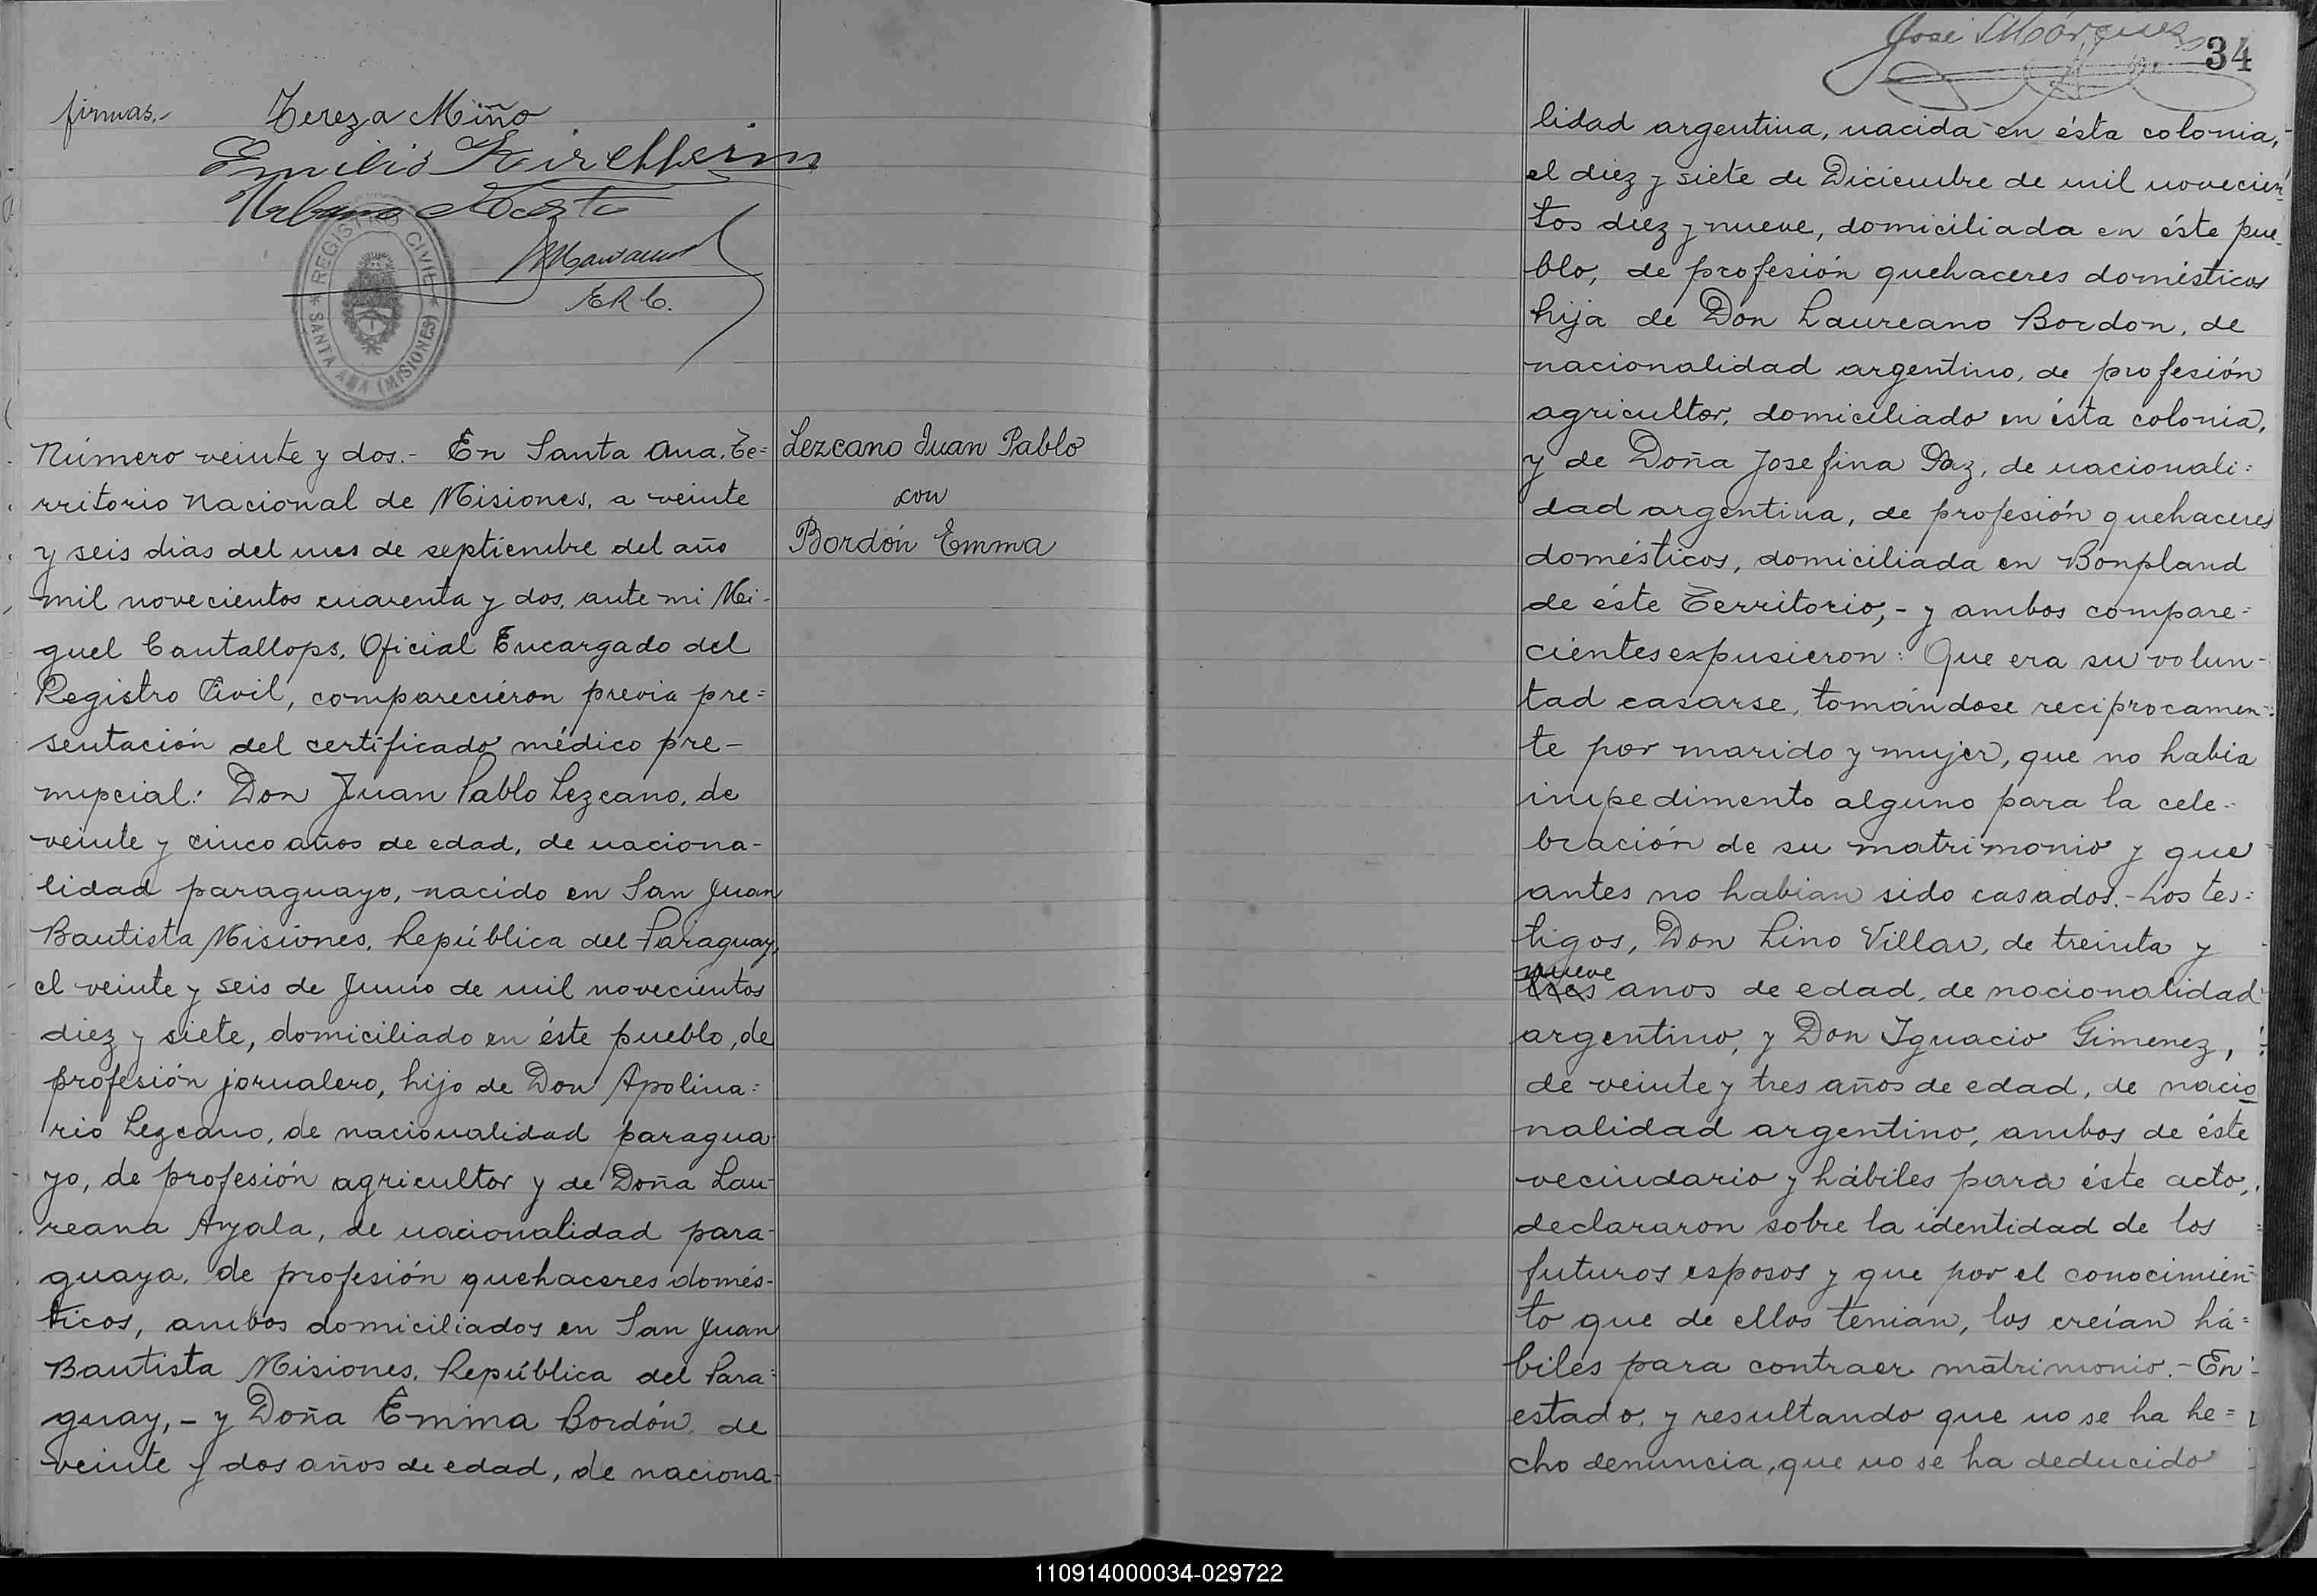 firmas.-
Tereza Miño
Emilio
Urbano
E R C.
REGISTRO CIVIL
* SANTA ANA (MISIONES) *
Número veinte y dos.- En Santa Ana, Te=
rritorio Nacional de Misiones, a veinte
y seis dias del mes de septiembre del año
mil novecientos cuarenta y dos, ante mi Mi-
guel Cantallops, Oficial Encargado del
Registro Civil, compareciéron previa pre=
sentación del certificado médico pre-
nupcial: Don Juan Pablo Lezcano, de
veinte y cinco años de edad, de naciona-
lidad paraguayo, nacido en San Juan
Bautista Misiones, República del Paraguay,
el veinte y seis de Junio de mil novecientos
diez y siete, domiciliado en éste pueblo, de
profesión jornalero, hijo de Don Apolina=
rio Lezcano, de nacionalidad paragua-
yo, de profesión agricultor y de Doña Lau-
reana Ayala, de nacionalidad para-
guaya, de profesión quehaceres domés-
ticos, ambos domiciliados en San Juan
Bautista Misiones, República del Para=
guay,- y Doña Emma Bordón, de
veinte y dos años de edad, de naciona-
Lezcano Juan Pablo
con
Bordón Emma
José Márquez
34
lidad argentina, nacida en ésta colonia,
el diez y siete de Diciembre de mil novecien-
tos diez y nueve, domiciliada en éste pue-
blo, de profesión quehaceres domésticos
hija de Don Laureano Bordon, de
nacionalidad argentino, de profesión
agricultor, domiciliado en ésta colonia,
y de Doña Josefina Paz, de nacionali=
dad argentina, de profesión quehaceres
domésticos, domiciliada en Bonpland
de éste Territorio,- y ambos compare=
cientes expusieron: Que era su volun-
tad casarse, tomándose reciprocamen-
te por marido y mujer, que no habia
impedimento alguno para la cele-
bración de su matrimonio y que
antes no habian sido casados.- Los tes=
tigos, Don Lino Villar, de treinta y
nueve
tres anos de edad, de nacionalidad
argentino, y Don Ignacio Gimenez,
de veinte y tres años de edad, de nacio
nalidad argentino, ambos de éste
vecindario y hábiles para éste acto,
declararon sobre la identidad de los
futuros esposos y que por el conocimien=
to que de ellos tenian, los creían há=
biles para contraer matrimonio.- En
estado, y resultando que no se ha he=
cho denuncia, que no se ha deducido
110914000034-029722